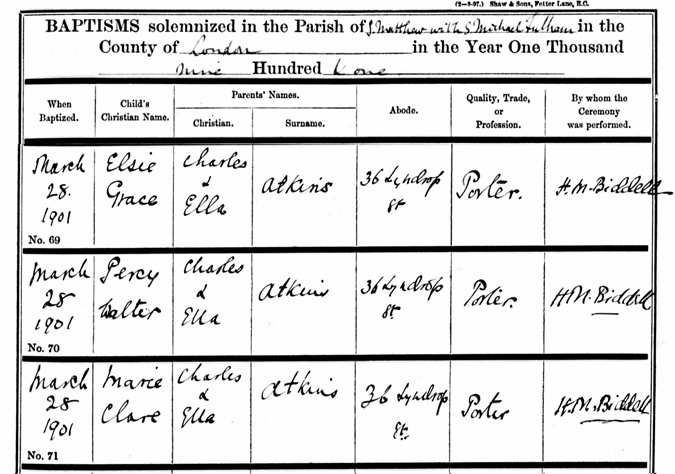 (2—9-97.) Shaw & Sons, Fetter Lane, E.C.
BAPTISMS solemnized in the Parish of S. Matthew with S. Michael Fulham in the
County of London in the Year One Thousand
nine Hundred & one
When Baptized.
Child's Christian Name.
Parents' Names.
Christian.
Surname.
Abode.
Quality, Trade, or Profession.
By whom the Ceremony was performed.
March Elsie Charles & Ella Atkins 36 Lyndrop St Porter. H. M. Biddell
28. Grace
1901
No. 69
March Percy Charles & Ella Atkins 36 Lyndrop St Porter. H. M. Biddell
28 Walter
1901
No. 70
March Marie Charles & Ella Atkins 36 Lyndrop St Porter H. M. Biddell
28 Clare
1901
No. 71